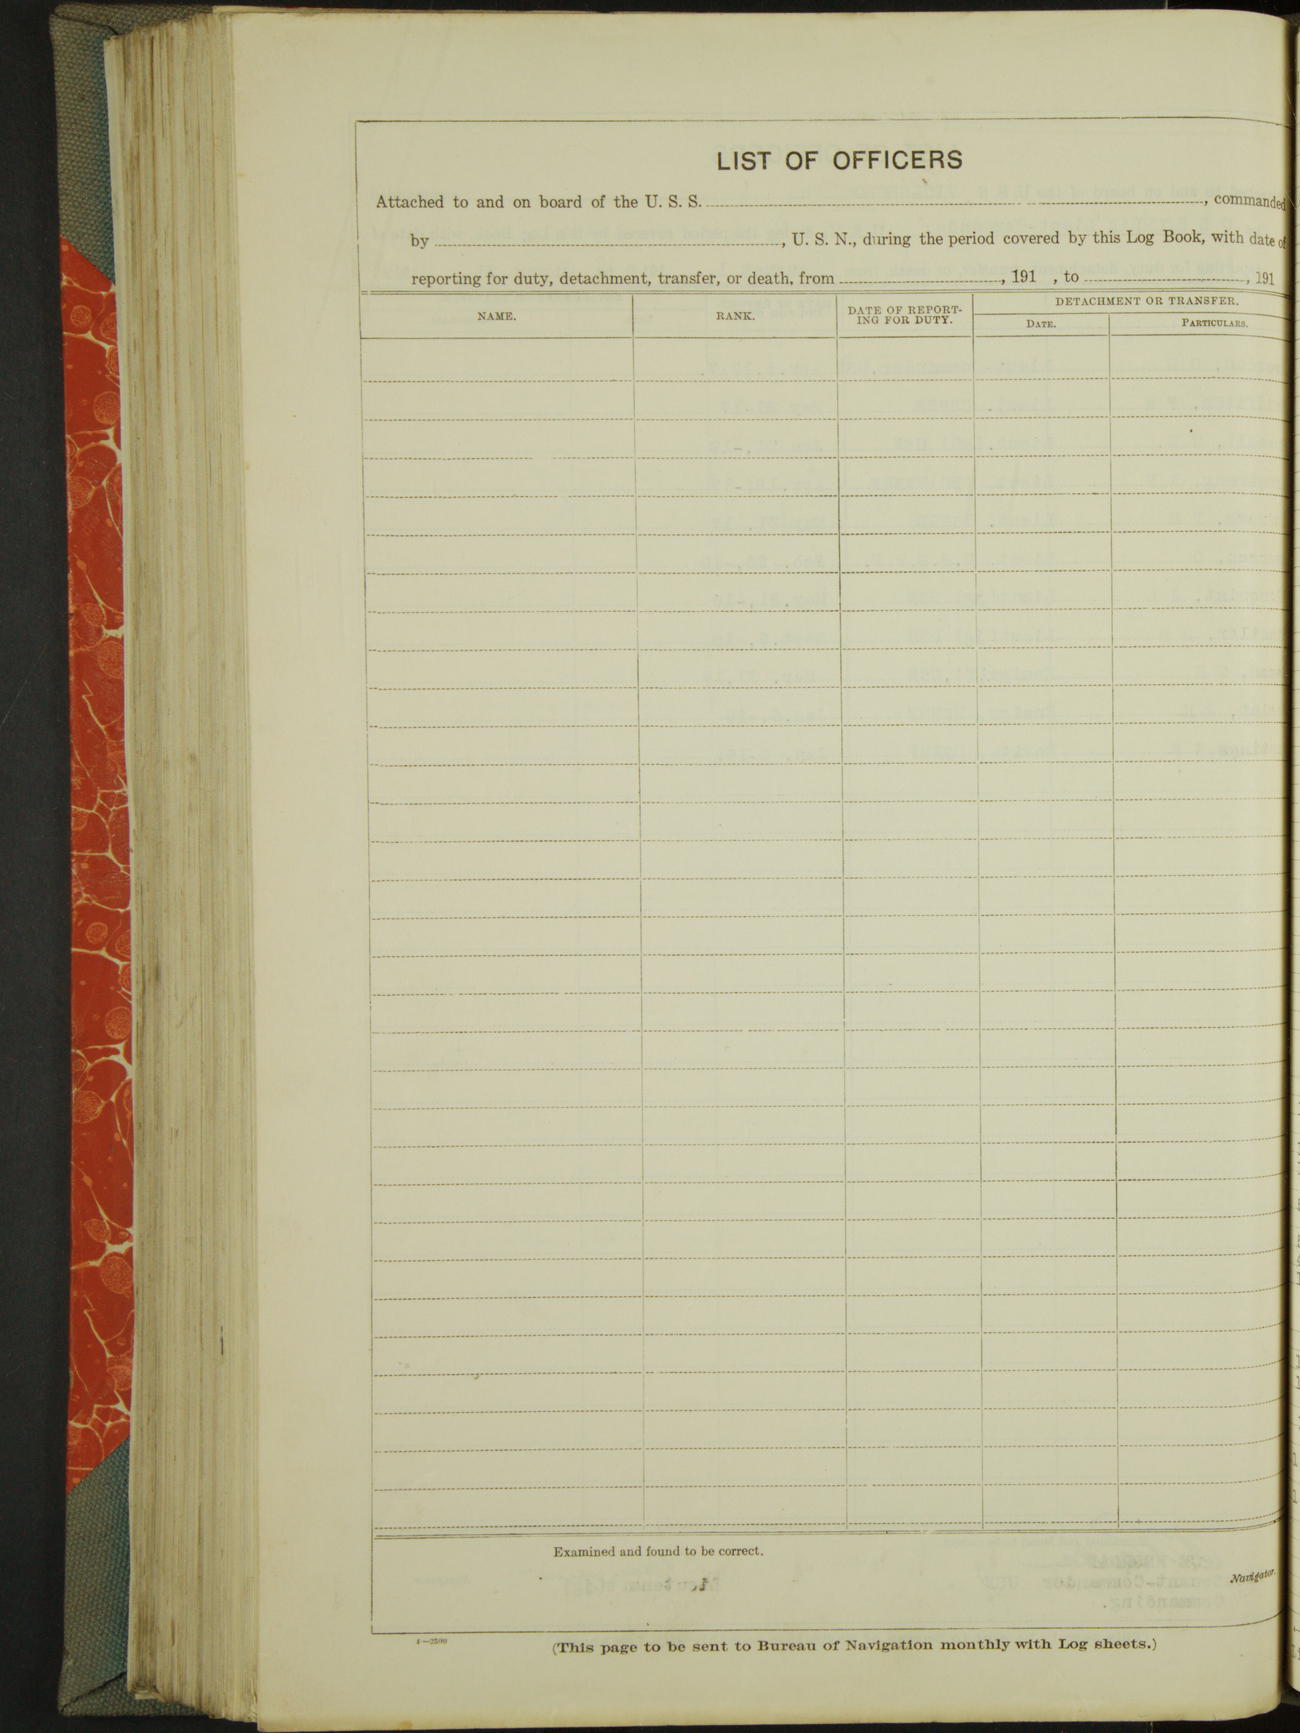 LIST OF OFFICERS
Attached to and on board of the U. S. S. , commanded
by , U. S. N., during the period covered by this Log Book, with date of
reporting for duty, detachment, transfer, or death, from , 191 , to , 191
NAME. RANK. DATE OF REPORT-ING FOR DUTY. DETACHMENT OR TRANSFER.
DATE. PARTICULARS.
Examined and found to be correct.
Navigator.
(This page to be sent to Bureau of Navigation monthly with Log sheets.)